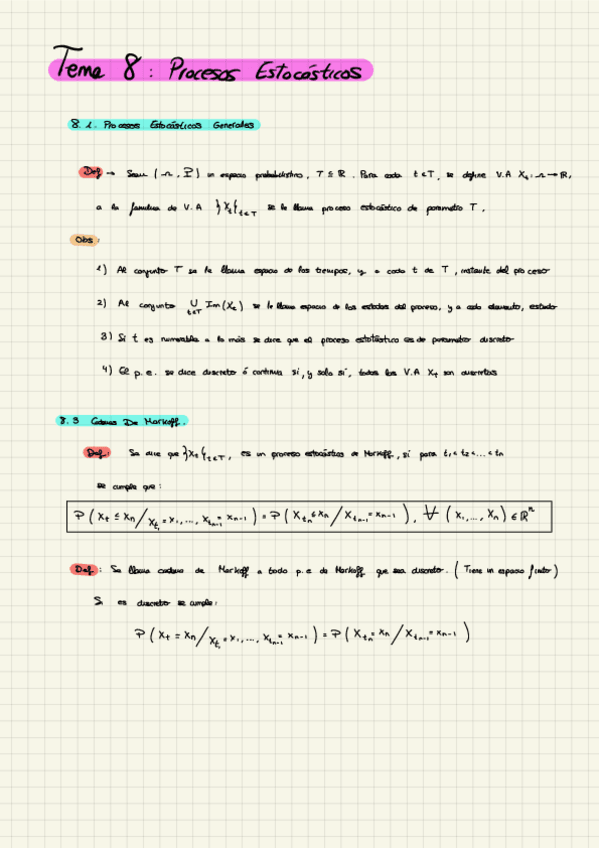 Tema 8: Procesos Estocásticos
8.1. Procesos Estocásticos Generales
Def → Sean (Ω, P) un espacio probabilístico, T ⊆ ℝ. Para cada t ∈ T, se define V.A Xₜ: Ω → ℝ,
a la familia de V.A }Xₜ{ₜ∈T se le llama proceso estocástico de parametro T.
Obs:
1) Al conjunto T se le llama espacio de los tiempos, y a cada t de T, instante del proceso
2) Al conjunto ∪ₜ∈T Im(Xₜ) se le llama espacio de los estados del proceso, y a cada elemento, estado
3) Si t es numerable a lo más se dice que el proceso estocástico es de parametro discreto
4) El p.e. se dice discreto ó continua si, y solo si, todas las V.A Xₜ son discretas
8.3 Cadenas De Markoff.
Def: Se dice que }Xₜ{ₜ∈T, es un proceso estocástico de Markoff, si para t₁<t₂<...<tn
se cumple que:
P(Xₜ ≤ xn / Xt₁ = x₁,..., Xtn-1 = xn-1) = P(Xtn ≤ xn / Xtn-1 = xn-1), ∀ (x₁,..., xn) ∈ ℝⁿ
Def: Se llama cadena de Markoff a todo p.e de Markoff que sea discreto. (Tiene un espacio finito)
Si es discreto se cumple:
P(Xₜ = xn / Xt₁ = x₁,..., Xtn-1 = xn-1) = P(Xtn = xn / Xtn-1 = xn-1)